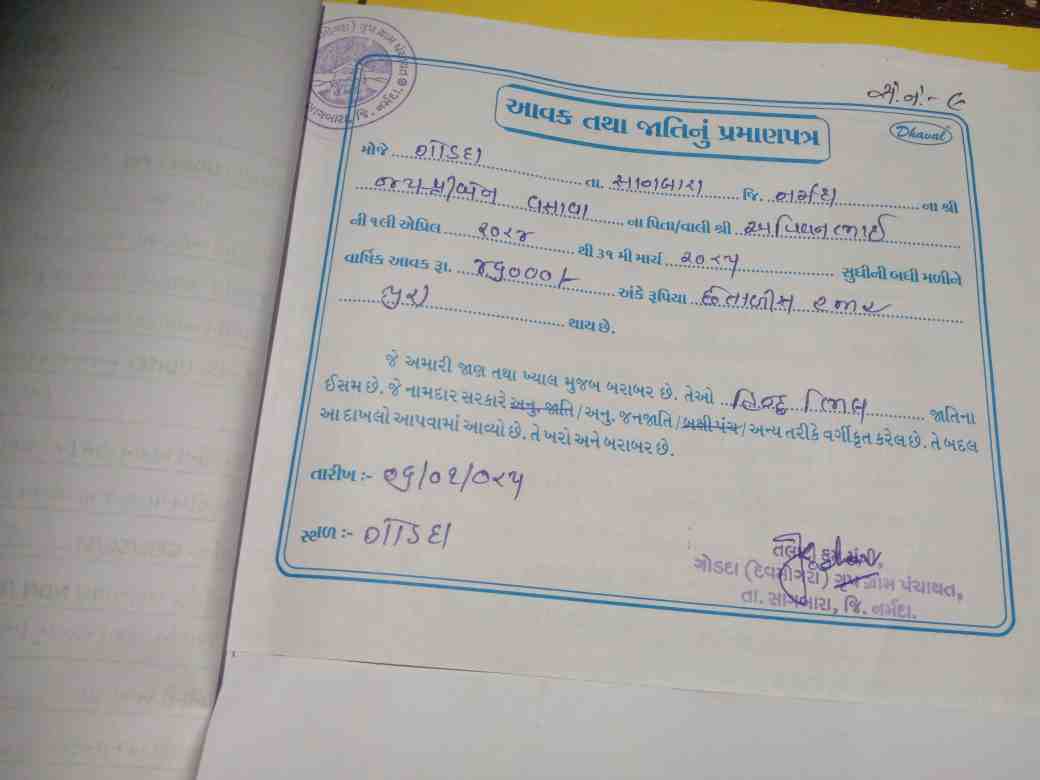 ગૃપ ગ્રામ પંચાયત
સાગબારા, જિ. નર્મદા.
અ.નં.- ૯
આવક તથા જાતિનું પ્રમાણપત્ર
Dhaval
મોજે ગોડદા તા. સાગબારા જિ. નર્મદા ના શ્રી
જયશ્રીબેન વસાવા ના પિતા/વાલી શ્રી અશ્વિનભાઈ
ની ૧લી એપ્રિલ ૨૦૨૪ થી ૩૧ મી માર્ચ ૨૦૨૫ સુધીની બધી મળીને
વાર્ષિક આવક રૂા. ૪૬૦૦૦/- અંકે રૂપિયા છેતાળીસ હજાર
પુરા થાય છે.
જે અમારી જાણ તથા ખ્યાલ મુજબ બરાબર છે. તેઓ હિન્દુ ભિલ જાતિના
ઈસમ છે. જે નામદાર સરકારે અનુ. જાતિ/અનુ. જનજાતિ/બક્ષીપંચ/અન્ય તરીકે વર્ગીકૃત કરેલ છે. તે બદલ
આ દાખલો આપવામાં આવ્યો છે. તે ખરો અને બરાબર છે.
તારીખ :- ૦૬/૦૧/૦૨૫
સ્થળ :- ગોડદા
તલાટી કમ મંત્રી,
ગોડદા (દેવમોગરા) ગૃપ ગ્રામ પંચાયત,
તા. સાગબારા, જિ. નર્મદા.